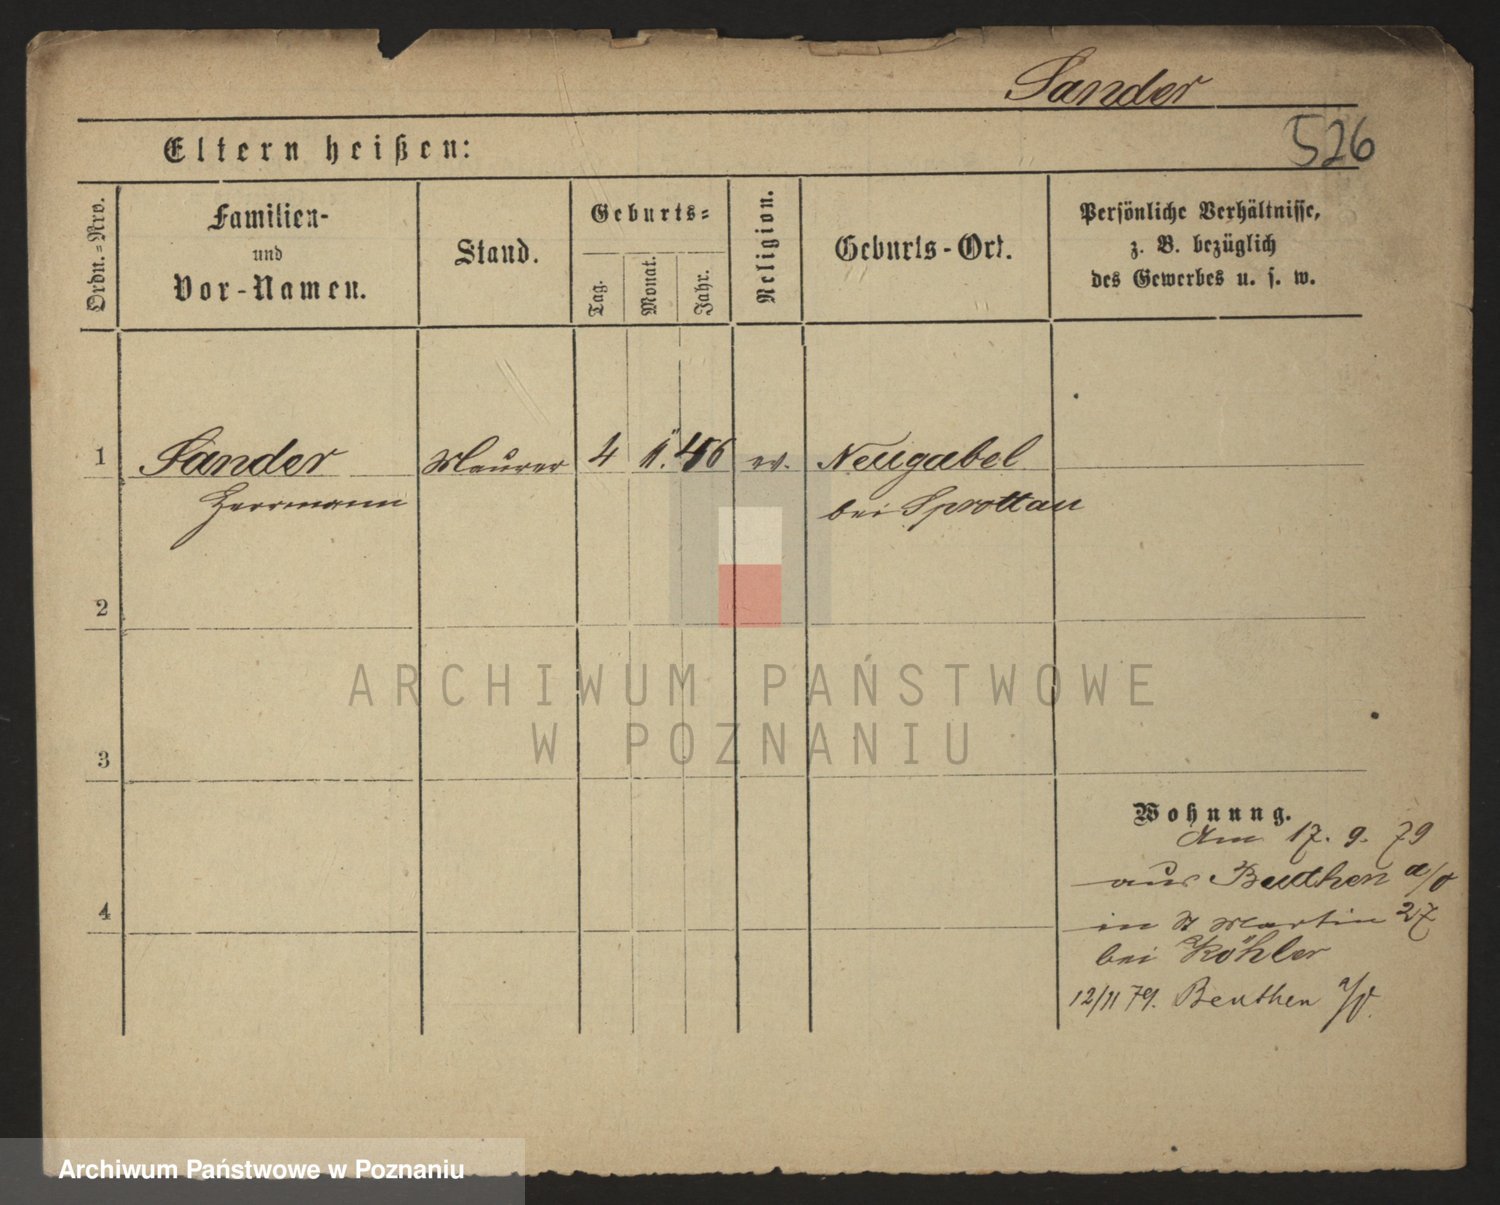 Sander
526
Eltern heißen:
Ordn.-Nro.
Familien-
und
Vor-Namen.
Stand.
Geburts-
Tag.
Monat.
Jahr.
Religion.
Geburts-Ort.
Persönliche Verhältnisse,
z. B. bezüglich
des Gewerbes u. s. w.
1 Sander Maurer 4 ev. Neugabel
Herrmann bei Sprottau
2
3
4
Wohnung.
Am 17. 9. 79
aus Beuthen a/O
in St Martin 27
bei Köhler
12/11 79. Beuthen a/O.
ARCHIWUM PAŃSTWOWE
W POZNANIU
Archiwum Państwowe w Poznaniu